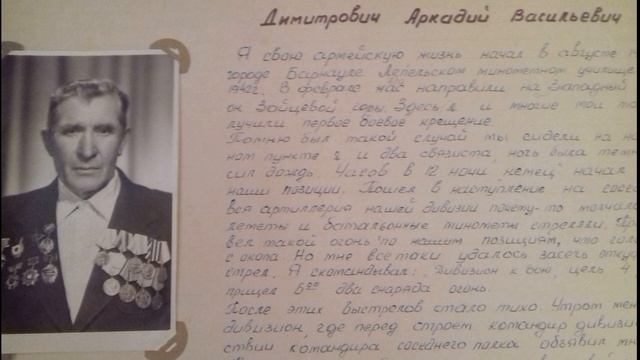 Димитрович Аркадий Васильевич
Я свою армейскую жизнь начал в августе
городе Барнауле Лепельском минометном училище
1942г. В феврале нас направили на Западный
он Зайцевой горы. Здесь я и многие мои то
лучили первое боевое крещение.
Помню был такой случай мы сидели на на
ном пункте я и два связиста, ночь была темн
сил дождь. Часов в 12 ночи немец начал
наши позиции. Пошел в наступление на сосе
вся артиллерия нашей дивизии почему-то молчала
леметы и батальонные минометы стреляли.
вел такой огонь по нашим позициям, что гол
с окопа. Но мне все таки удалось засечь откуд
стрел. Я скомандывал: Дивизион к бою, цель 4
прицел 6⁰⁰ два снаряда огонь.
После этих выстрелов стало тихо. Утром мен
дивизион, где перед строем командир дивизи
ствии командира соседнего полка объявил мн